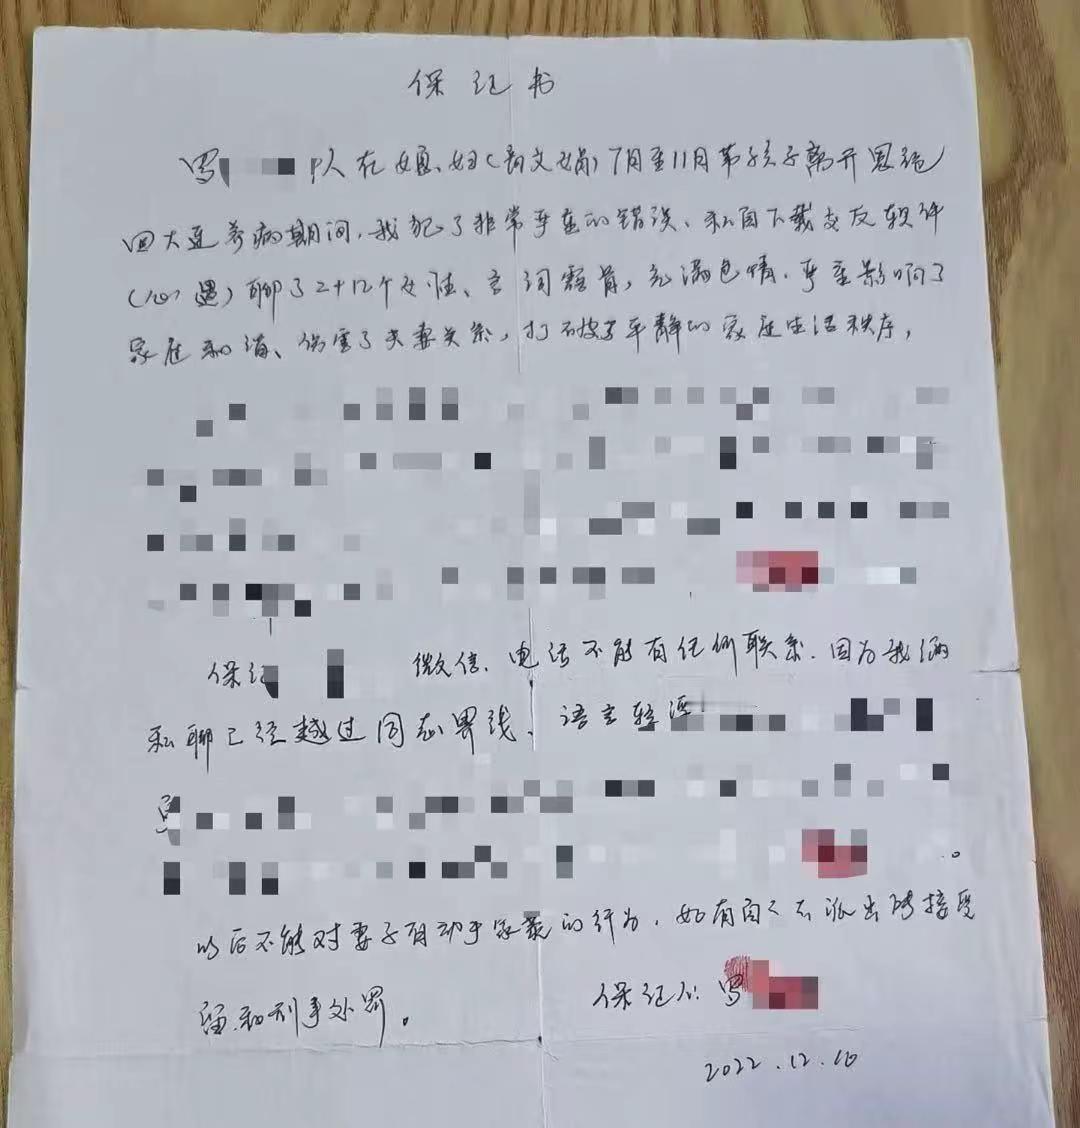 保证书
罗 人在媳妇( 文娟)7月至11月带孩子离开恩施
回大连养病期间,我犯了非常严重的错误、私自下载交友软件
(心遇)聊了2+12个女性、言词露骨,充满色情.严重影响了
家庭和谐、伤害了夫妻关系,打破了平静的家庭生活秩序,
保证 微信.电话不能有任何联系.因为我俩
私聊已经越过同志界线、语言轻浮
以后不能对妻子有动手家暴的行为.如有 派出所接受
留.和刑事处罚。
保证人:罗
2022.12.10